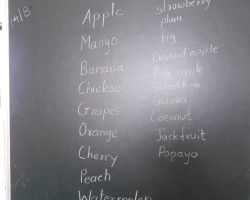 Apple
Mango
Banana
Chickoo
Grapes
Orange
Cherry
Peach
Watermelon
strawberry
plum
fig
Custard-apple
Pine apple
Guava
Coconut
Jackfruit
Papaya